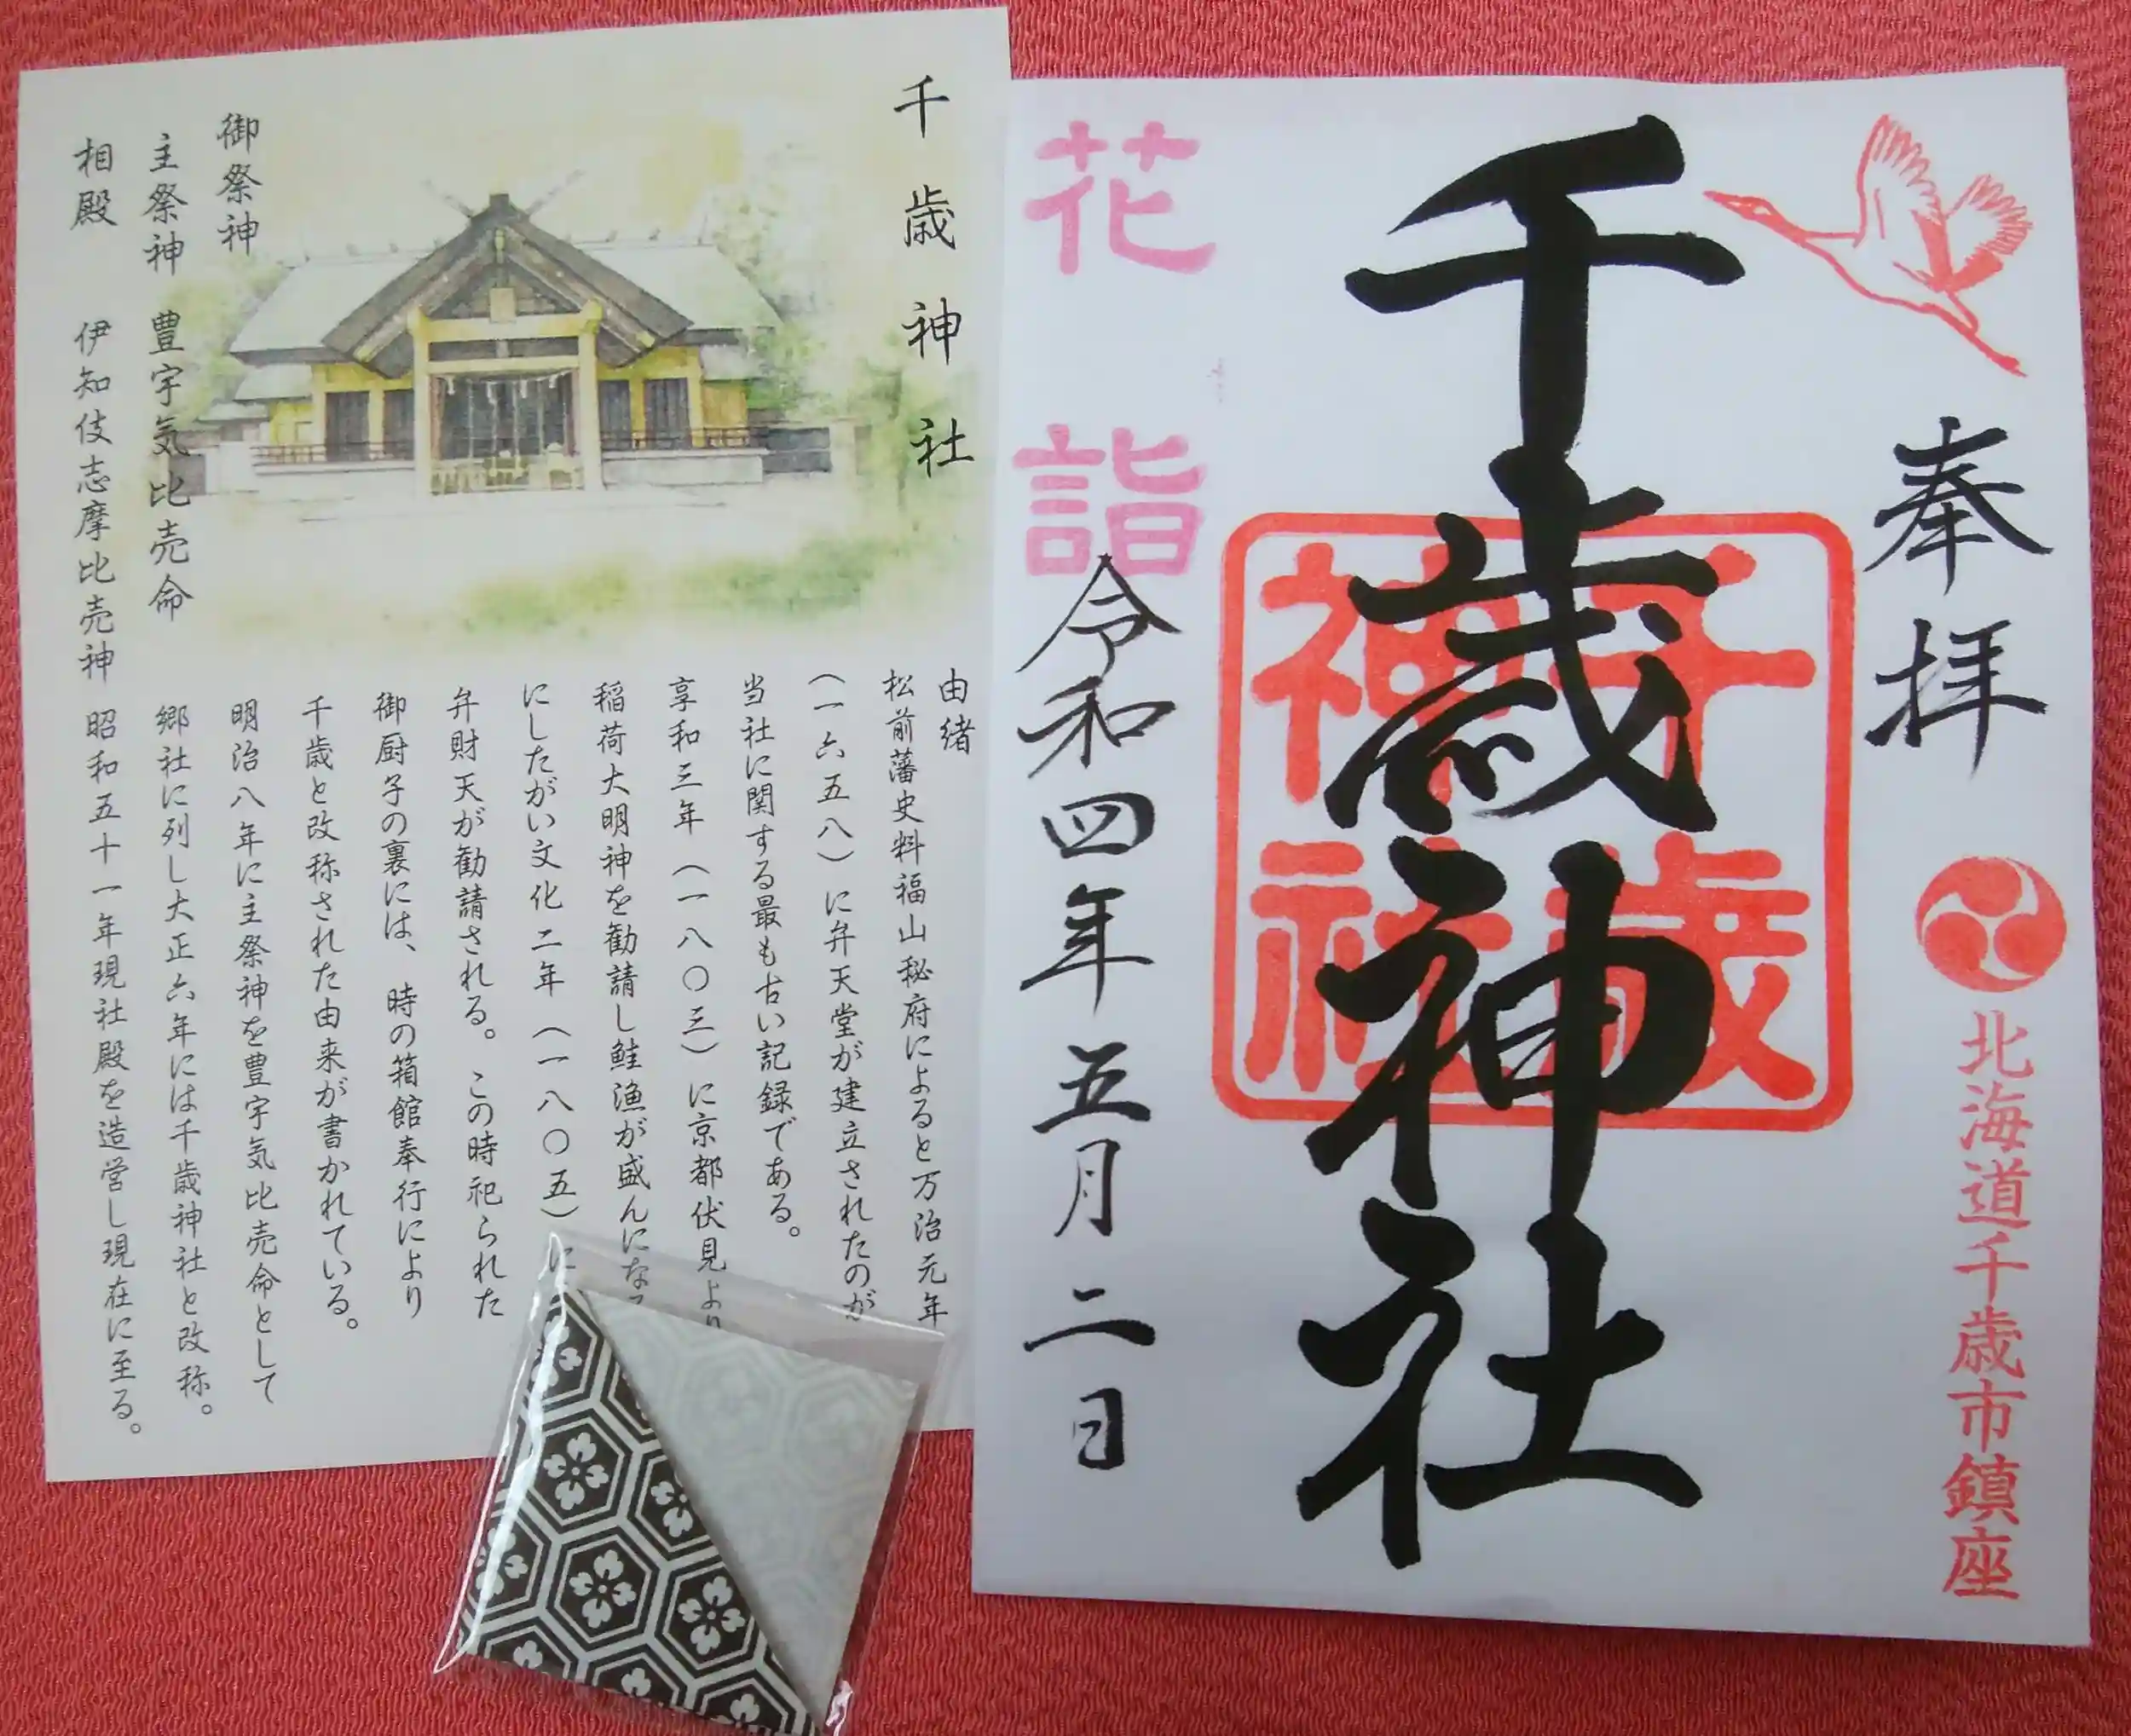 千歳神社
御祭神
主祭神 豊宇気比売命
相殿 伊知伎志摩比売神
由緒
松前藩史料福山秘府によると万治元年
(一六五八)に弁天堂が建立されたのが
当社に関する最も古い記録である。
享和三年(一八〇三)に京都伏見より
稲荷大明神を勧請し鮭漁が盛んになる
にしたがい文化二年(一八〇五)に
弁財天が勧請される。この時祀られた
御厨子の裏には、時の箱館奉行により
千歳と改称された由来が書かれている。
明治八年に主祭神を豊宇気比売命として
郷社に列し大正六年には千歳神社と改称。
昭和五十一年現社殿を造営し現在に至る。
奉拝
北海道千歳市鎮座
千歳神社
千歳
神社
花詣
令和四年五月二日